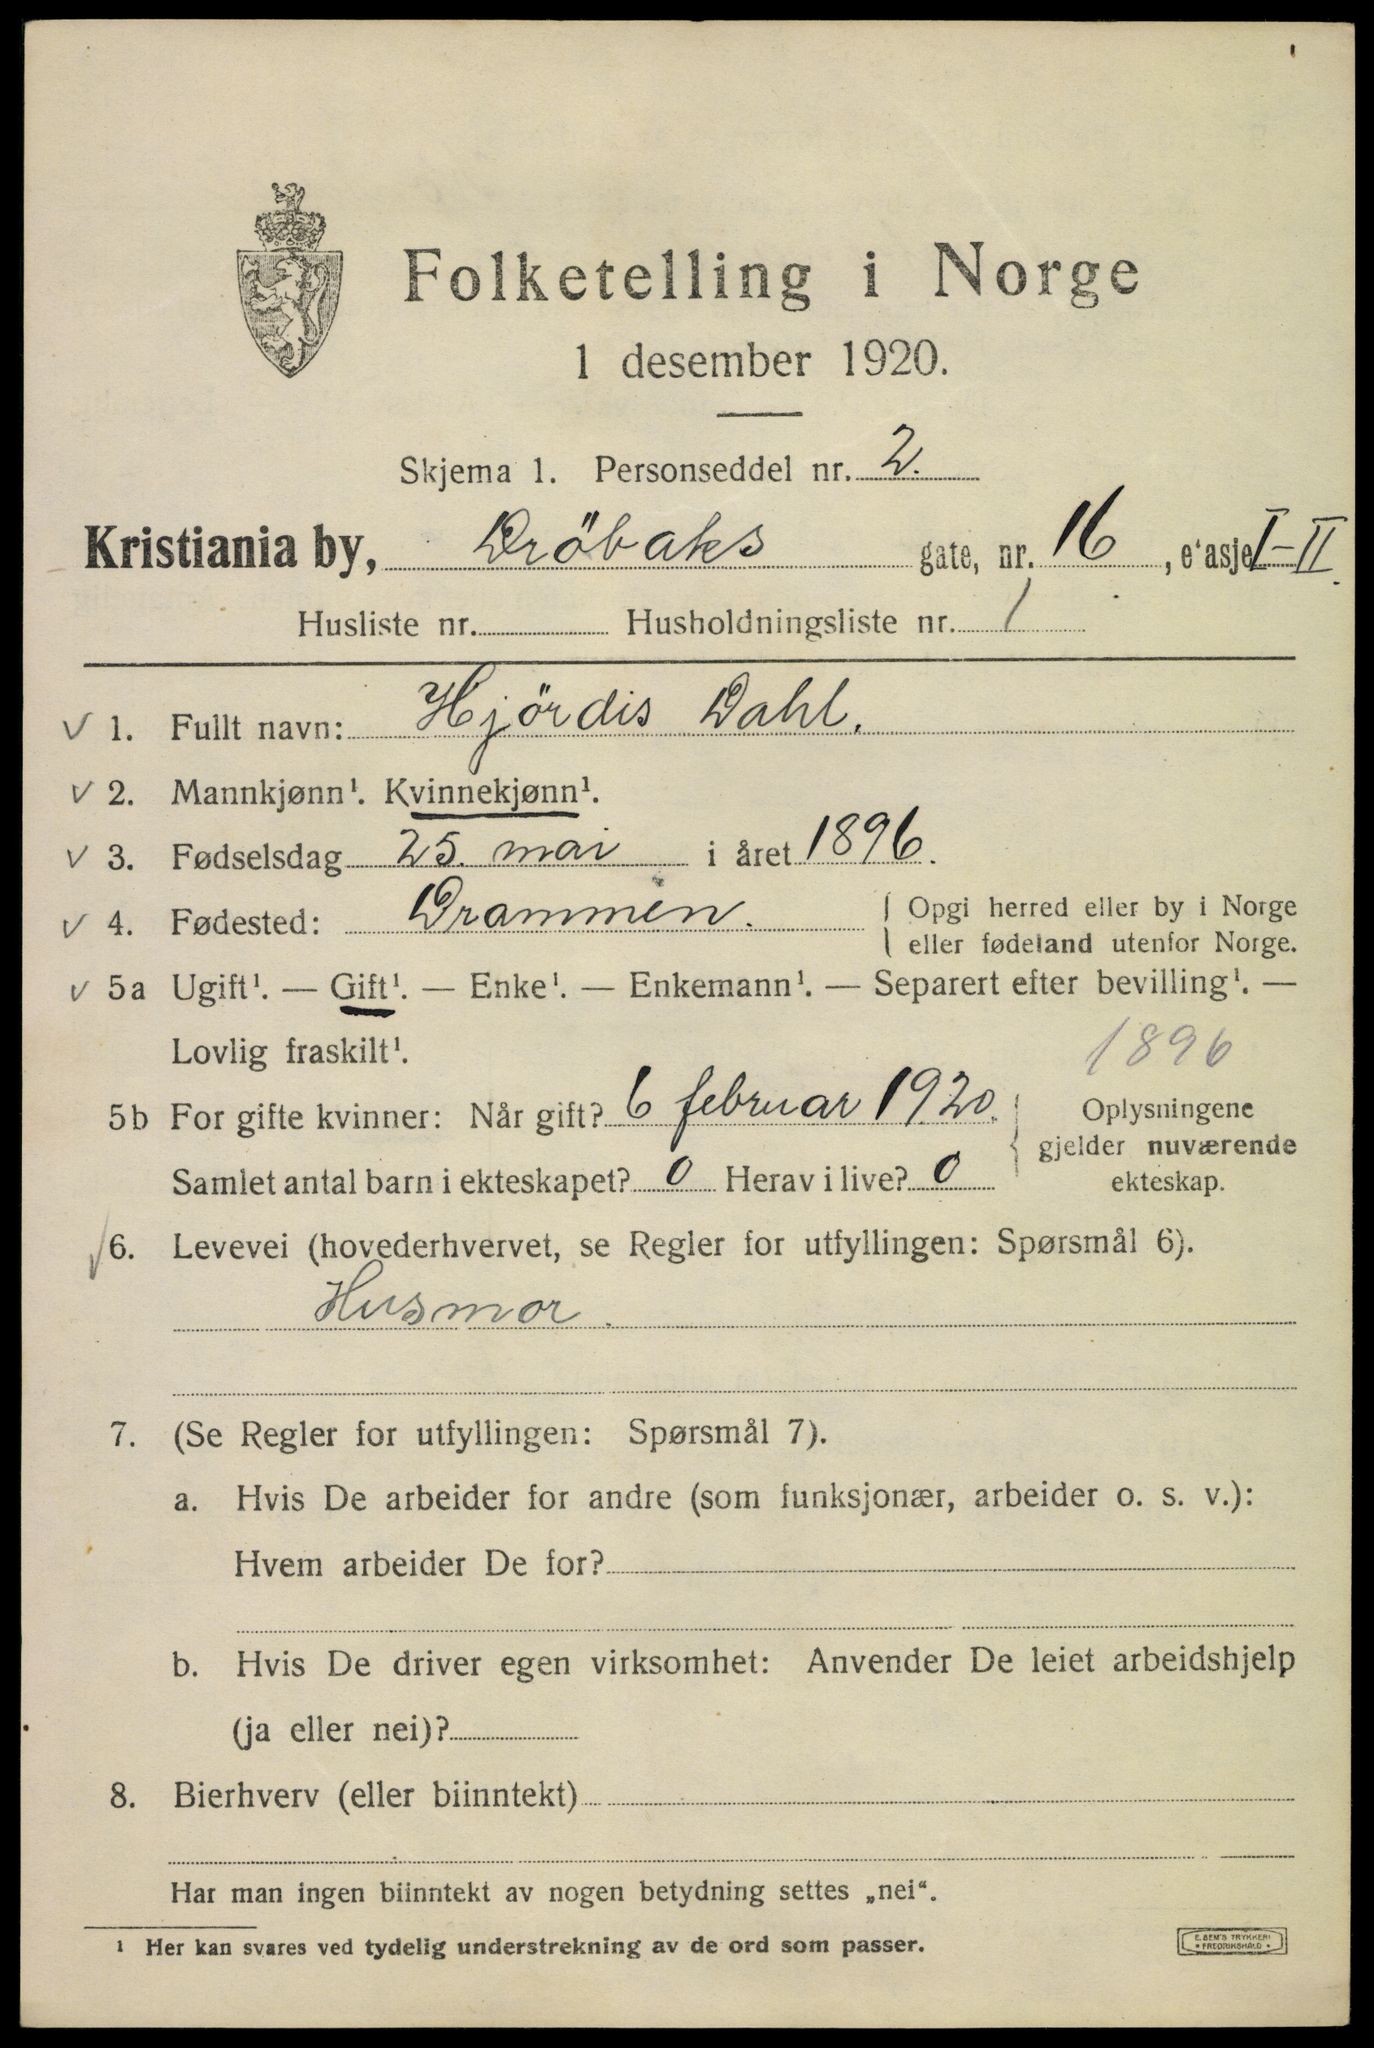 Folketelling i Norge
1 desember 1920.
Skjema 1. Personseddel nr. 2.
Kristiania by, Dröbaks gate, nr. 16, e'asje I-II.
Husliste nr. Husholdningsliste nr. 1
✓ 1. Fullt navn: Hjördis Dahl.
✓ 2. Mannkjønn¹. Kvinnekjønn¹.
✓ 3. Fødselsdag 25. mai i året 1896.
✓ 4. Fødested: Drammen. Opgi herred eller by i Norge
eller fødeland utenfor Norge.
✓ 5a Ugift¹. — Gift¹. — Enke¹. — Enkemann¹. — Separert efter bevilling¹. —
Lovlig fraskilt¹. 1896
5b For gifte kvinner: Når gift? 6 februar 1920. Oplysningene
gjelder nuværende
Samlet antal barn i ekteskapet? 0 Herav i live? 0 ekteskap.
✓ 6. Levevei (hovederhvervet, se Regler for utfyllingen: Spørsmål 6).
Husmor.
7. (Se Regler for utfyllingen: Spørsmål 7).
a. Hvis De arbeider for andre (som funksjonær, arbeider o. s. v.):
Hvem arbeider De for?
b. Hvis De driver egen virksomhet: Anvender De leiet arbeidshjelp
(ja eller nei)?
8. Bierhverv (eller biinntekt)
Har man ingen biinntekt av nogen betydning settes „nei“.
¹ Her kan svares ved tydelig understrekning av de ord som passer.
E. SEM'S TRYKKERI
• FREDRIKSHALD •